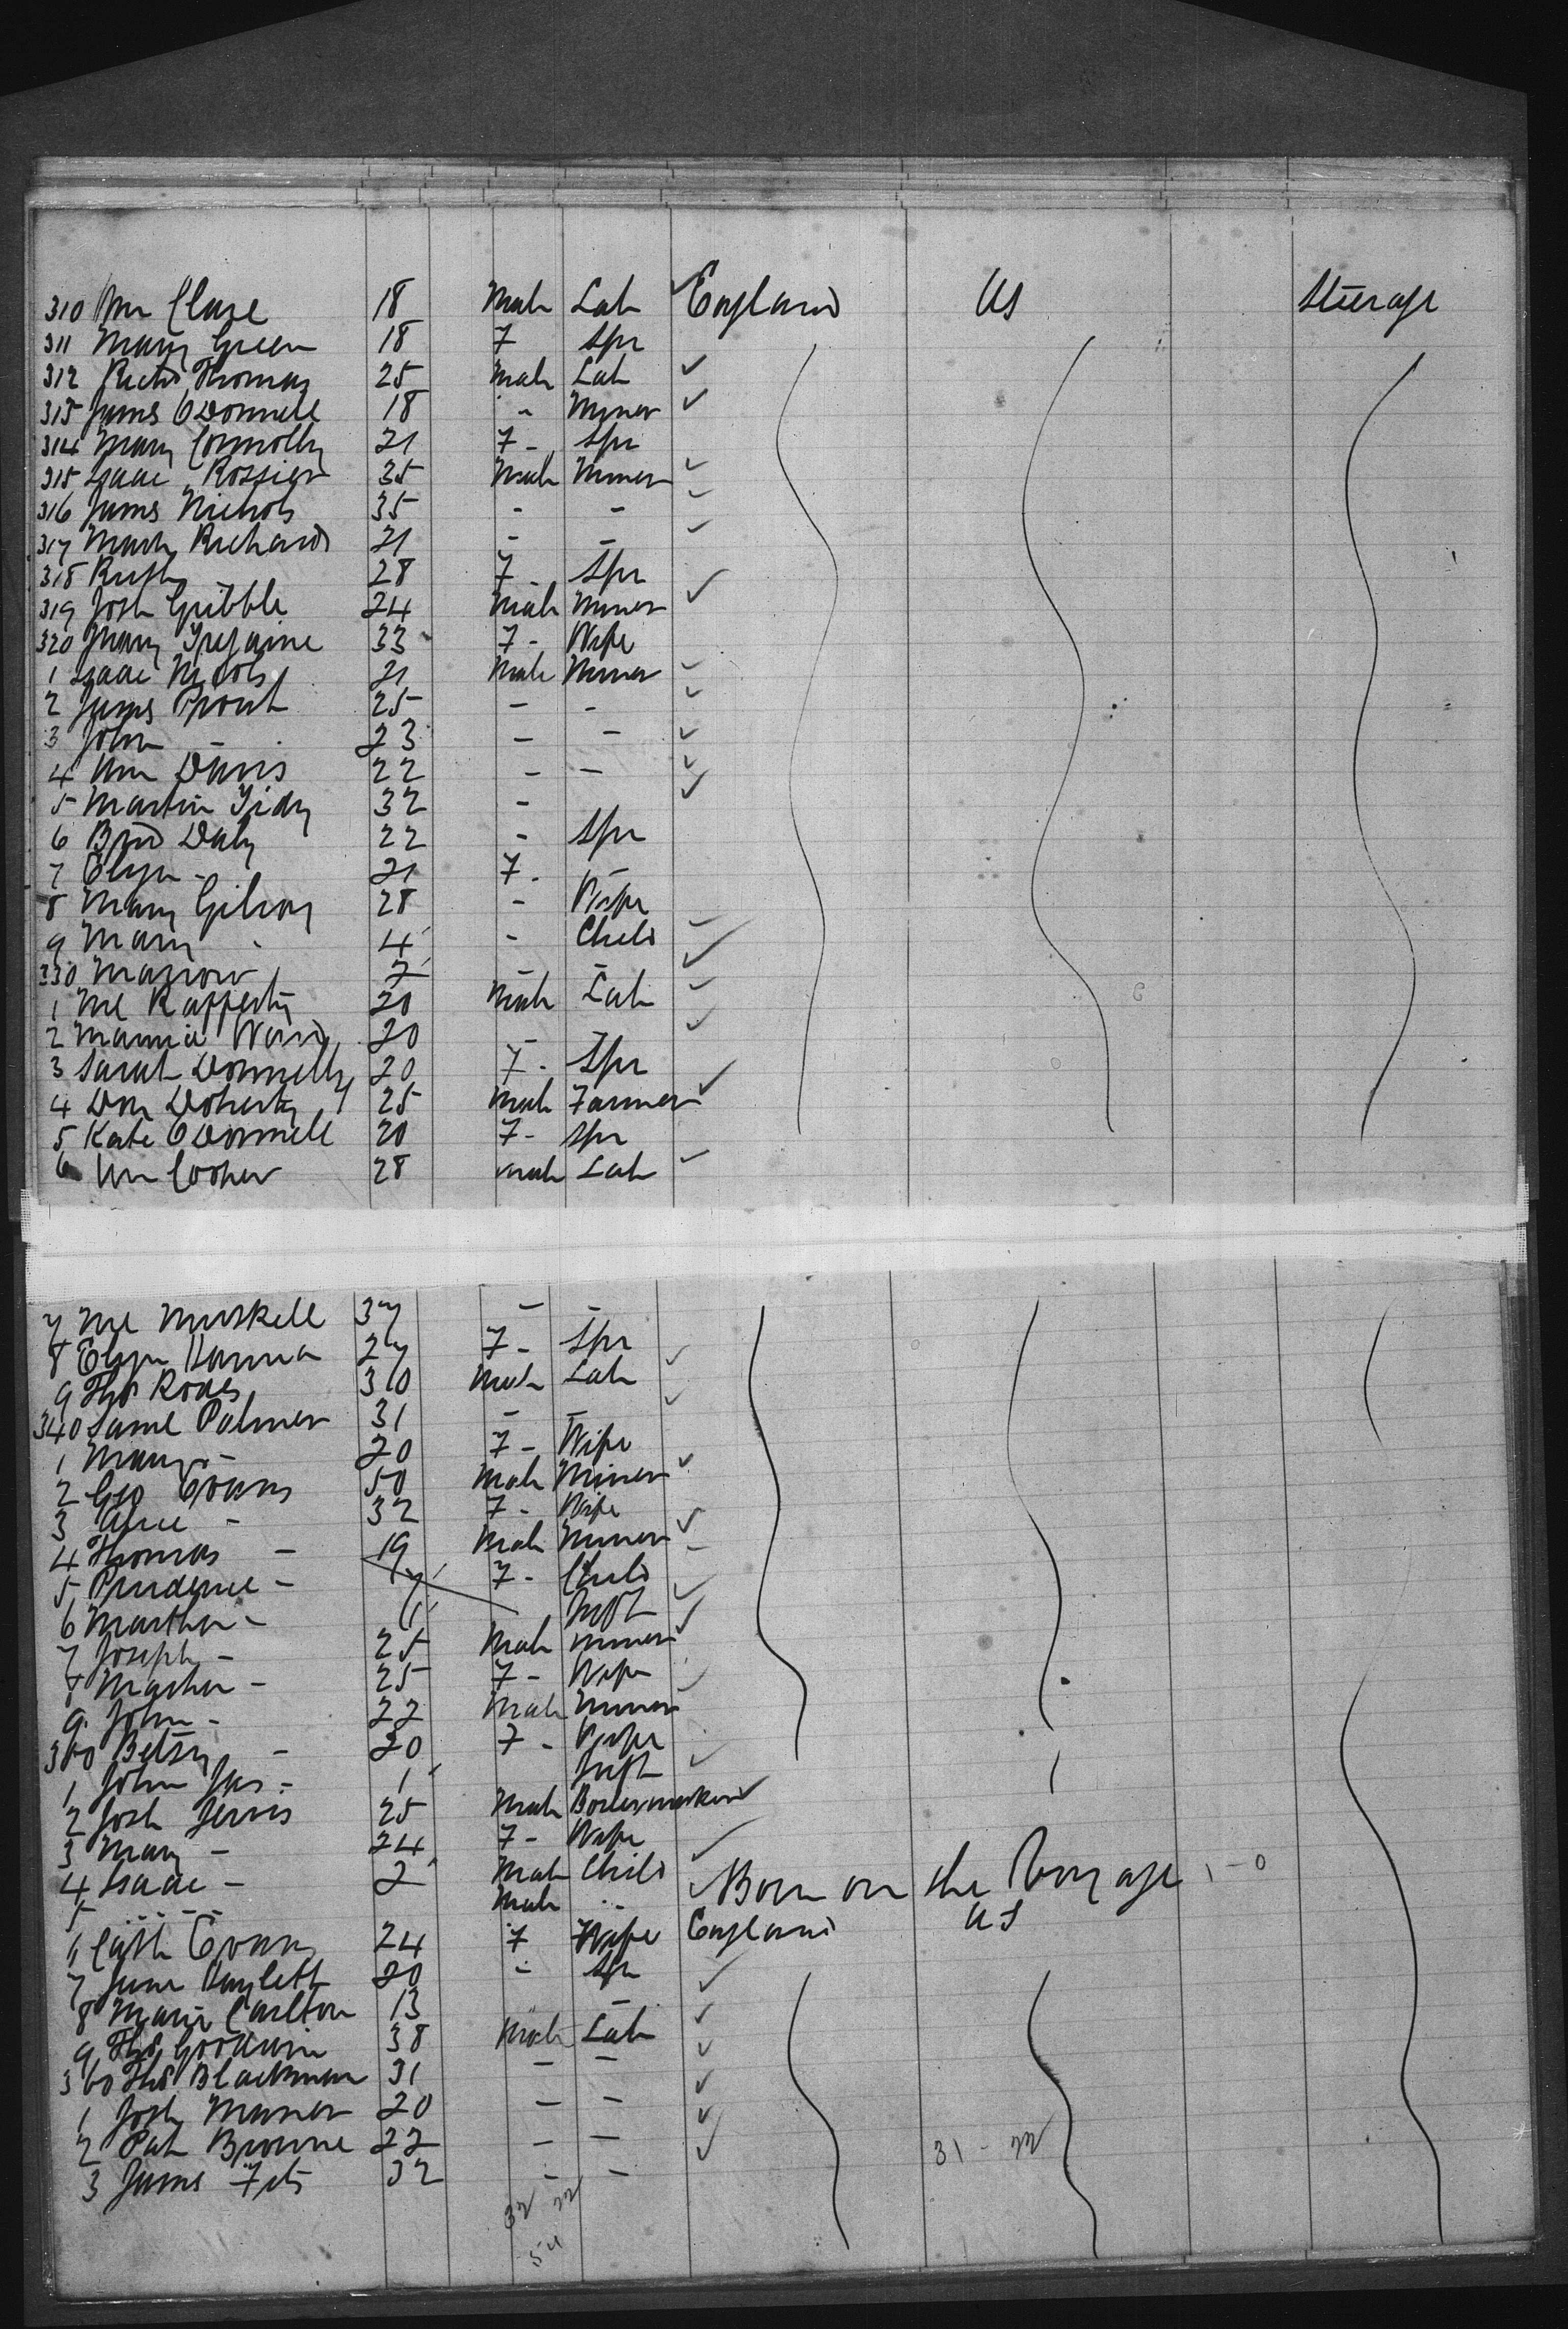 310 Wm Clase 18 Male Lab England US Steerage
311 Mary Green 18 F Spr
312 Richd Thomas 25 Male Lab
313 James O'Donnell 18 " Miner
314 Mary Connolly 21 F - Spr
315 Isaac Rossier 35 Male Miner
316 James Nichols 35 - -
317 Mark Richards 21 - -
318 Ruth - 28 F - Spr
319 Josh Gribble 24 Male Miner
320 Mary Tregaine 33 F - Wife
1 Isaac 21 Male Miner
2 James Prout 25 - -
3 John - 23 - -
4 Wm Davis 22 - -
5 Martin Tidy 32 -
6 Brid Daly 22 - Spr
7 Eliza - 21 F - -
8 Mary Gilroy 28 - Wife
9 Mary - 4 - Child
330 7 - -
1 Ml Rafferty 20 Male Lab
2 Ward 20 -
3 Sarah Donnelly 20 F - Spr
4 Dom Doherty 25 Male Farmer
5 Kate O'Donnell 20 F - Spr
6 Wm Cosher 28 Male Lab
7 Ml Muskell 37 - -
8 Eliza Hanna 27 F - Spr
9 Ths Rodes 30 Male Lab
340 Saml Palmer 31 - -
1 Mary - 20 F - Wife
2 Geo Evans 50 Male Miner
3 Alice - 32 F - Wife
4 Thomas - 19 Male Miner
5 Prudence - F - Child
6 Martha - Inft
7 Joseph - 25 Male Miner
8 Martha - 25 F - Wife
9 John - 22 Male Miner
350 Betsy - 20 F - Wife
1 John Jas - 1 Inft
2 Josh Jervis 25 Male Boilermaker
3 Mary - 24 F - Wife
4 Isaac - 2 Male Child
5 - - - - Male - Born on the Voyage 1 - 0
6 Cath Evans 24 F Wife England US
7 Jane Haylett 20 - Spr
8 Maria Carlton 13 -
9 Ths Goodwin 38 Male Lab
360 Ths Blackman 31 - -
1 Josh 20 - -
2 Pat Browne 22 - - 31 - 22
3 James 32 - -
32 22
54